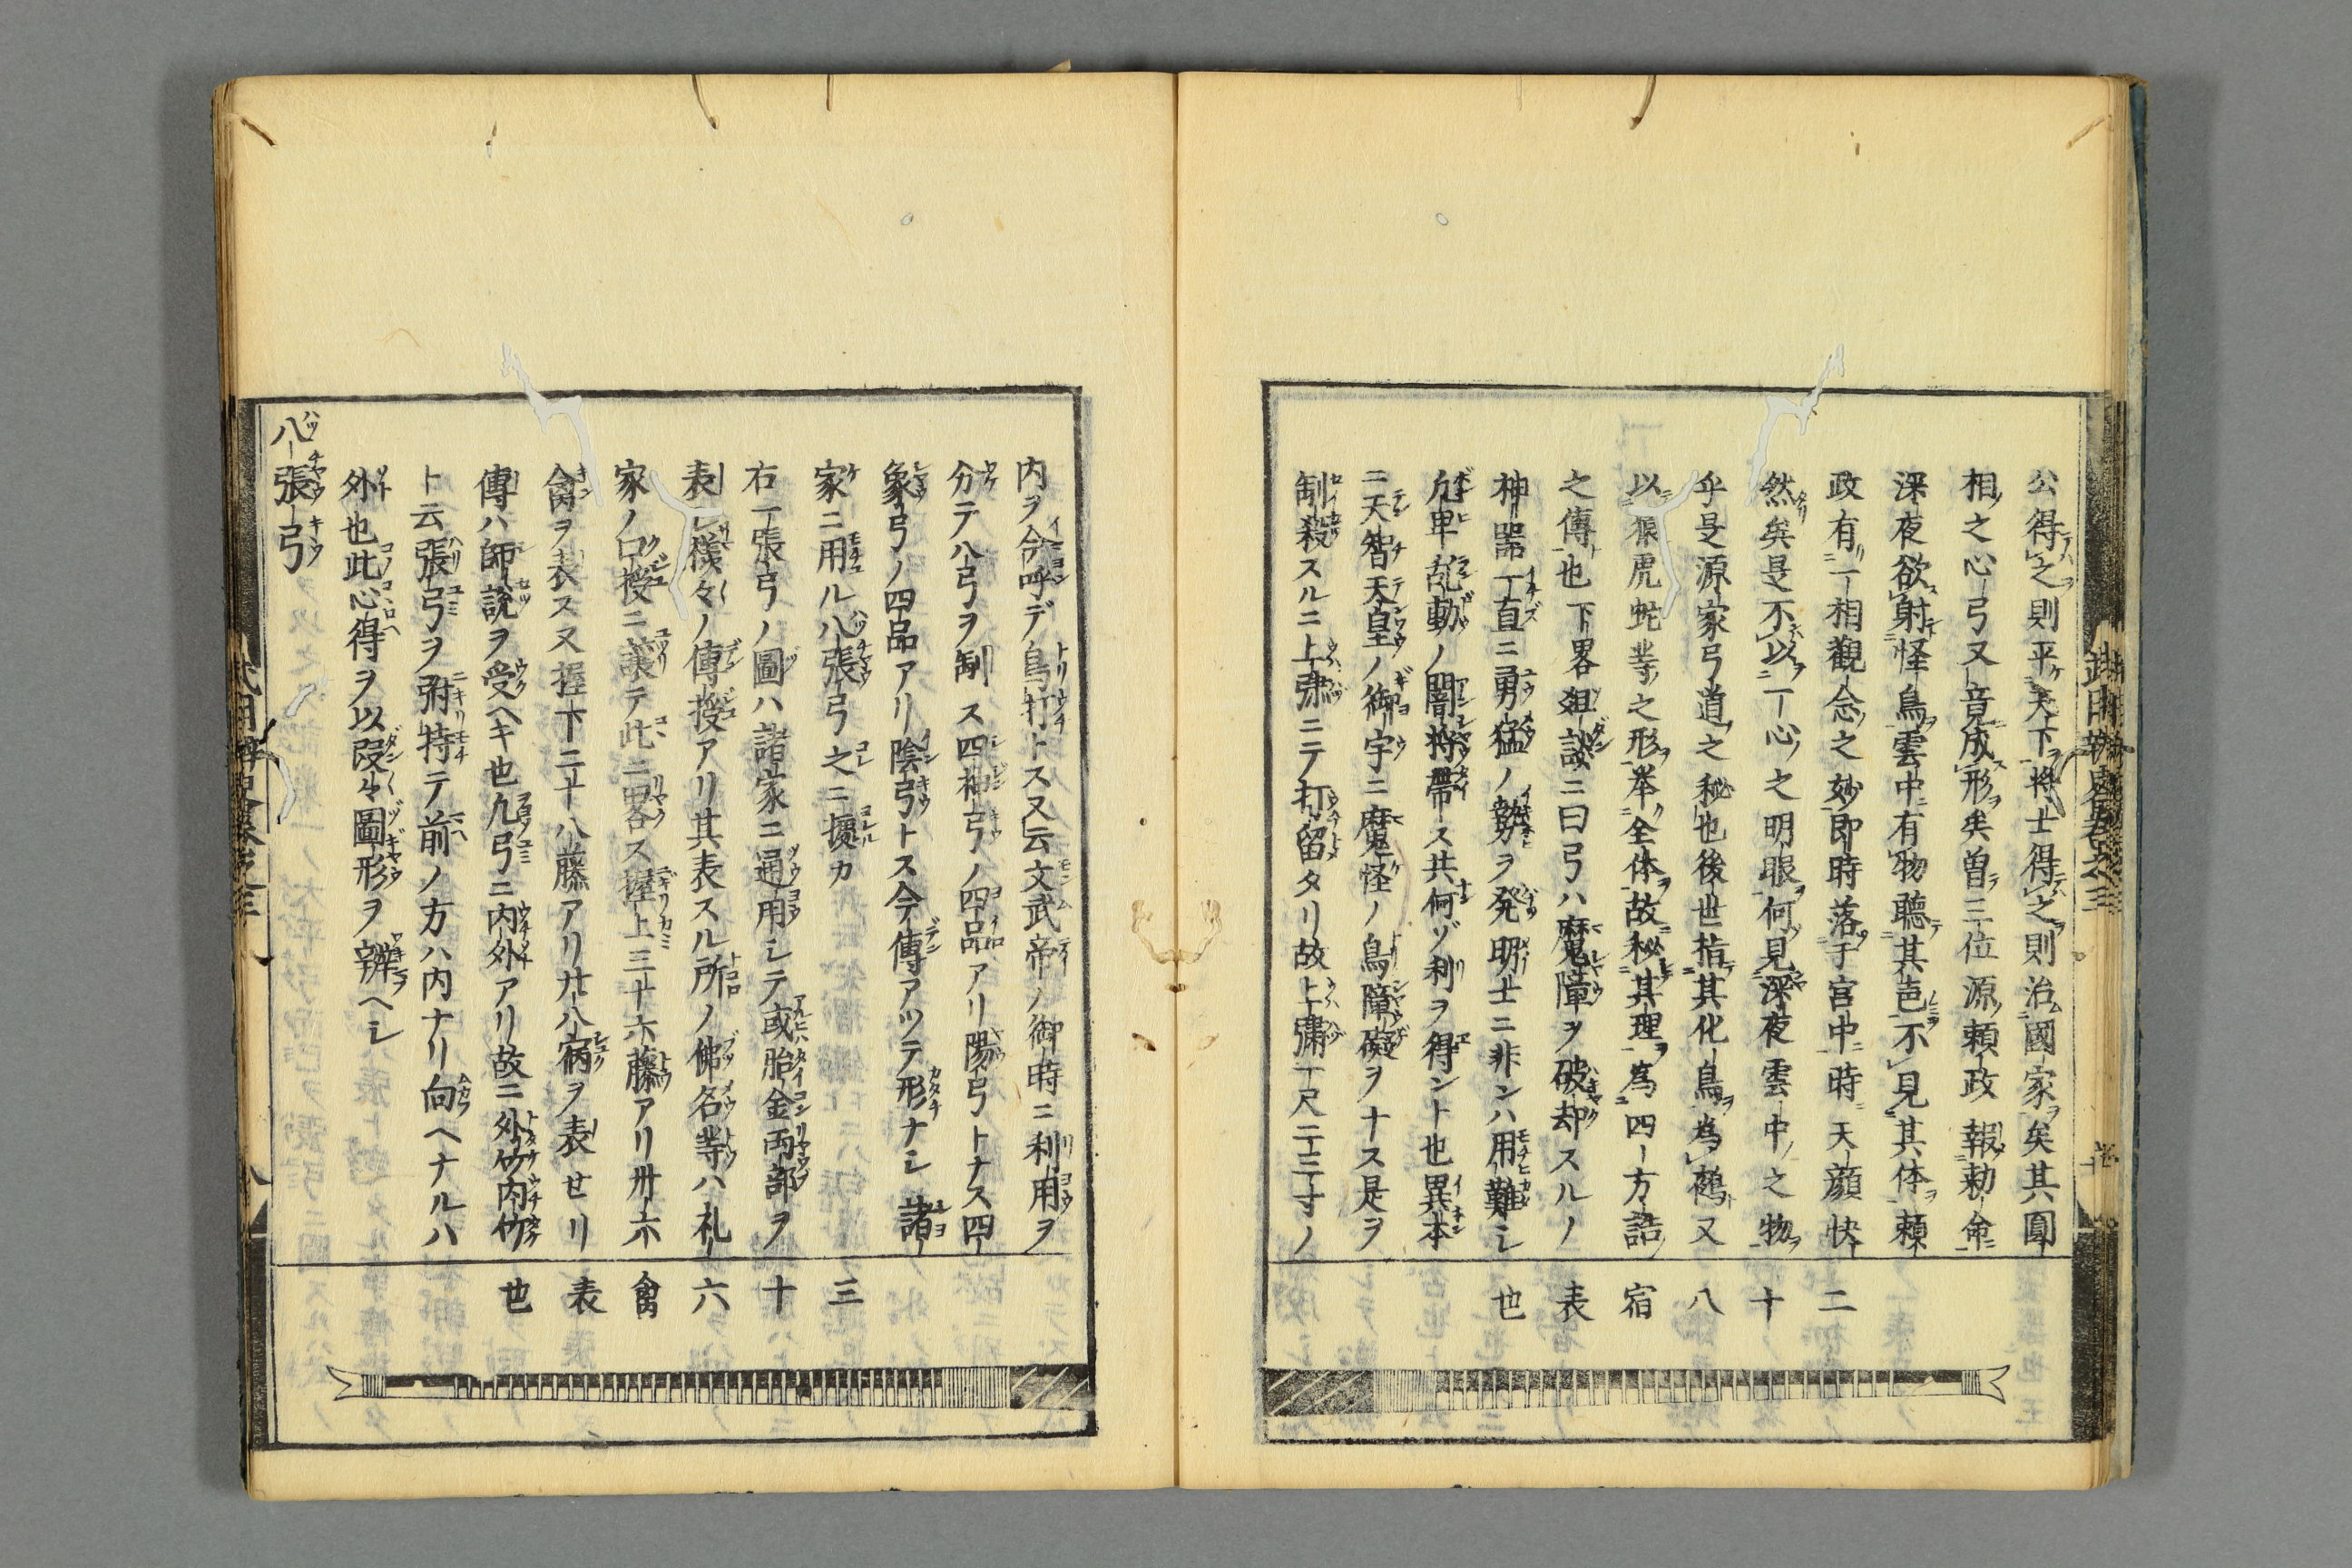 公得之則平天下将士得之則治國家矣其圓
相之心弓又竟成形矣曽三位源頼政報勅命
深夜欲射怪鳥雲中有物聴其声不見其体頼
政有一相觀念之妙即時落于宮中時天顔快
然矣是不以一心之明眼何見深夜雲中之物
乎是源家弓道之秘也後世指其化鳥為鵺又
以猿虎蛇等之形挙全体故秘其理為四方詰
之傳也下畧爼談ニ曰弓ハ魔障ヲ破却スルノ
神器一直ニ勇猛ノ勢ヲ発明士ニ非ンハ用難シ
凡卑乱動ノ闇将帯ス共何ゾ利ヲ得ント也異本
ニ天智天皇ノ御宇ニ魔怪ノ鳥障礙ヲナス是ヲ
制殺スルニ上弭ニテ打留タリ故上弭一尺二三寸ノ
二
十
八
宿
表
也
内ヲ今呼デ鳥打トス又云文武帝ノ御時ニ利用ヲ
分テ八弓ヲ制ス四神弓ノ四品アリ陽弓トナス四
象弓ノ四品アリ陰弓トス今傳アツテ形ナシ諸
家ニ用ル八張弓之ニ擾カ
右一張弓ノ圖ハ諸家ニ通用シテ或胎金両部ヲ
表シ様々ノ傳授アリ其表スル所ノ佛名等ハ礼
家ノ口授ニ譲テ此ニ畧ス握上三十六藤アリ卅六
禽ヲ表ス又握下二十八藤アリ廿八宿ヲ表セリ
傳ハ師説ヲ受ヘキ也凡弓ニ内外アリ故ニ外竹内竹
ト云張弓ヲ弣持テ前ノ方ハ内ナリ向ヘナルハ
外也此心得ヲ以段々圖形ヲ辨ヘシ
八張弓
三
十
六
禽
表
也